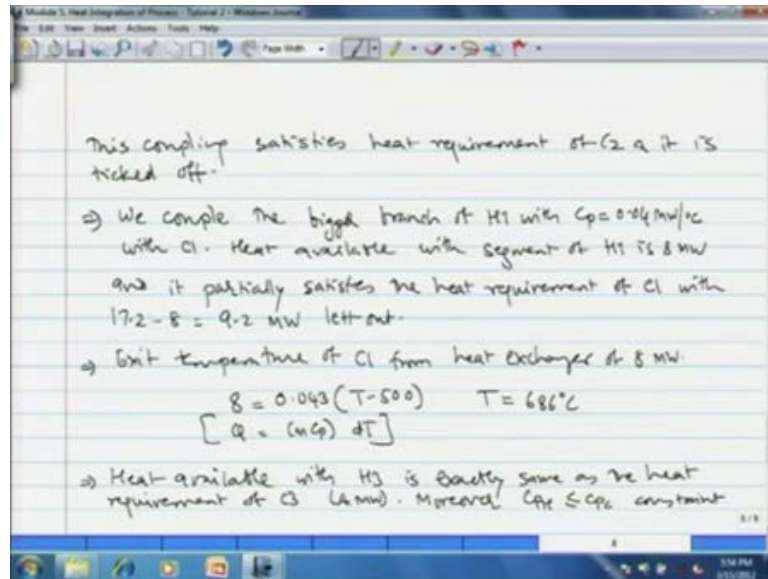 Module 5. Heat Integration of Process - Tutorial 2 - Windows Journal
File Edit View Insert Actions Tools Help
Page Width
This coupling satisfies heat requirement of C2 & it is
ticked off.
⇒ We couple the bigger branch of H1 with Cp = 0.04 MW/°C
with C1. Heat available with segment of H1 is 8 MW
and it partially satisfies the heat requirement of C1 with
17.2 - 8 = 9.2 MW left out.
⇒ Exit temperature of C1 from heat exchanger of 8 MW.
8 = 0.043 (T-500) T = 686°C
[Q = (mCp) dT]
⇒ Heat available with H3 is exactly same as the heat
requirement of C3 (4 MW). Moreover CPH ≤ CPC constraint
3:54 PM
3/15/2012